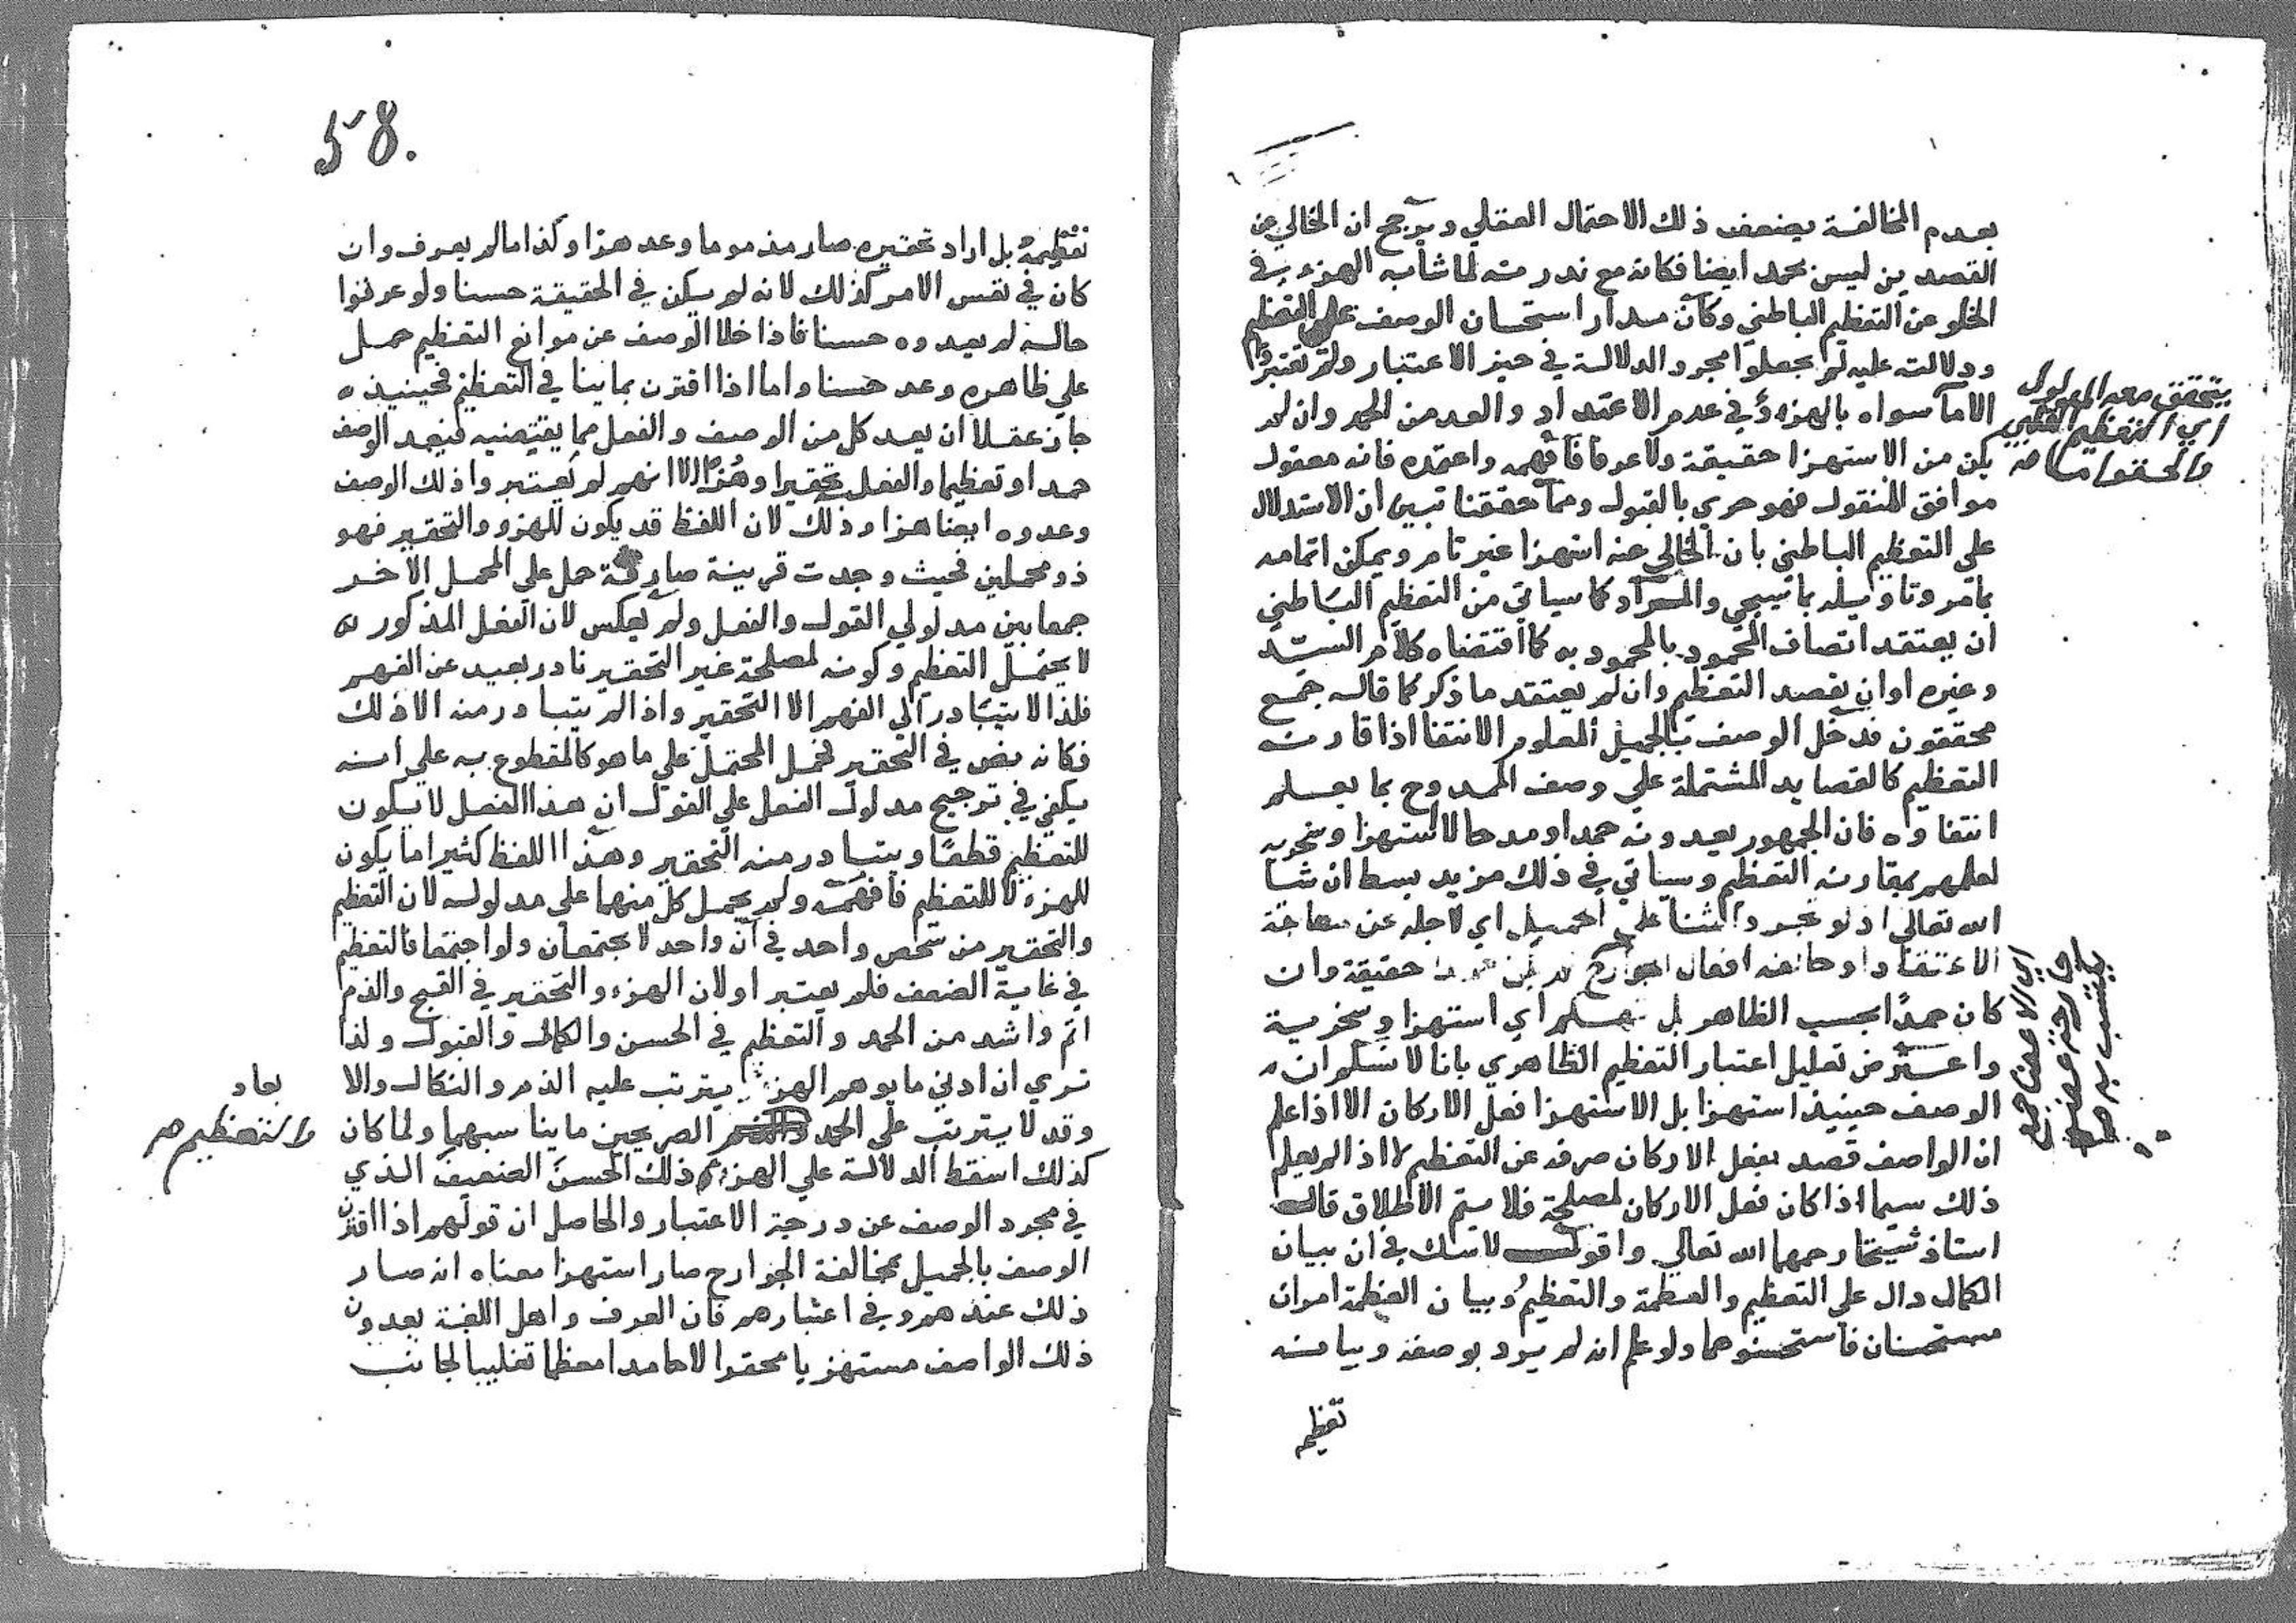 بعدم المخالفة يضعف ذلك الاحتمال العقلي ويرجح ان الخالي عن
القصدين ليس بحمد ايضا فكانه مع ندرته لما شابه الهزء في
الخلو عن التعظيم الباطني وكان مدار استحسان الوصف على التعظيم
ودلالته عليه لم يجعلوا مجرد الدلالة في حيز الاعتبار ولم يعتبروا
الا ما سواه بالهزء في عدم الاعتداد والعد من الحمد وان لم
يكن من الاستهزا حقيقة ولا عرفا فافهمه واعتمده فانه معقول
موافق للمنقول فهو حري بالقبول ومما حققنا تبين ان الاستدلال
على التعظيم الباطني بان الخالي عنه استهزا غير تام ويمكن اتمامه
بما مر وتاويله بما سيجي والمراد كما سياتي من التعظيم الباطني
ان يعتقد اتصاف المحمود بالمحمود به كما اقتضاه كلام السيد
وغيره او ان يقصد التعظيم وان لم يعتقد ما ذكر كما قاله جمع
محققون فدخل الوصف بالجميل المعلوم الانتفا اذا قارنه
التعظيم كالقصايد المشتملة علي وصف الممدوح بما يعلم
انتفاوه فان الجمهور يعدونه حمدا ومدحا لا استهزا وسخرية
لعلمهم بمقارنه التعظيم وسياتي في ذلك مزيد بسط ان شا
الله تعالى اذ لو تجرد الثنا على الجميل اي لاجله عن مطابقة
الاعتقاد او خالفه افعال الجوارح لم يكن حمدا حقيقة وان
كان حمدًا بحسب الظاهر بل تهكم اي استهزا وسخرية
واعترض تعليل اعتبار التعظيم الظاهري بانا لا نسلم ان
الوصف حينيذ استهزا بل الاستهزا فعل الاركان الا اذا علم
ان الواصف قصد بفعل الاركان صرفه عن التعظيم لا اذا لم يعلم
ذلك سيما اذا كان فعل الاركان لمصلحة فلا يتم الاطلاق قاله
استاذ شيخنا رحمهما الله تعالي واقول لا شك في ان بيان
الكمال دال على التعظيم والعظمة والتعظيم وبيان العظمة امران
مستحسنان فاستحسنوهما ولو علم انه لم يرد بوصفه وبيانه
تعظيم
يتحقق معه المدلول
اي التعظيم القلبي
والحقوا
اي الاعتقاد
58.
تعظيمه بل اراد تحقيره صار مذموما وعد هزا وكذا ما لم يعرف وان
كان في نفس الامر كذلك لانه لم يكن في الحقيقة حسنا ولو عرفوا
حاله لم يعدوه حسنا فاذا خلا الوصف عن موانع التعظيم حمل
علي ظاهره وعد حسنا واما اذا اقترن بما ينافي التعظيم فحينيذ
جاز عقلا ان يعد كل من الوصف والفعل مما يقتضيه فيعد الوصف
حمدا وتعظيما والفعل تحقيرا وهُزًا الا انهم لم يعتبروا ذلك الوصف
وعدوه ايضا هزا وذلك لان اللفظ قد يكون للهزو والتحقير فهو
ذو محملين فحيث وجدت قرينة صارفة حمل على المحمل الاخر
جمعا بين مدلولي القول والفعل ولم يعكس لان الفعل المذكور
لا يحتمل التعظيم وكونه لمصلحة غير التحقير نادر بعيد عن الفهم
فلذا لا يتبادر الي الفهم الا التحقير واذا لم يتبادر منه الا ذلك
فكانه نص في التحقير فحمل المحتمل علي ما هو كالمقطوع به على انه
يكفي في ترجيح مدلول الفعل على القول ان هذا الفعل لا يكون
للتعظيم قطعًا ويتبادر منه التحقير وهذا اللفظ كثيرا ما يكون
للهزء لا للتعظيم فافهمه ولم يحمل كل منهما على مدلوله لان التعظيم
والتحقير من شخص واحد في آن واحد لا يجتمعان ولو اجتمعا فالتعظيم
في غاية الضعف فلم يعتبر اولان الهزء والتحقير في القبح والذم
اتم واشد من الحمد والتعظيم في الحسن والكمال والقبول ولذا
تري ان ادني ما يوهم الهزء يترتب عليه الذم والنكال والا
وقد لا يترتب على الحمد الصريحين ما يناسبهما ولما كان
كذلك اسقط الدلالة علي الهزء ذلك الحسن الضعيف الذي
في مجرد الوصف عن درجة الاعتبار والحاصل ان قولهم اذا اقترن
الوصف بالجميل بمخالفة الجوارح صار استهزا معناه انه صار
ذلك عندهم وفي اعتبارهم فان العرف واهل اللغة يعدون
ذلك الواصف مستهزيا محقرا لا حامدا معظما تغليبا لجانب
بعاد
والتعظيم صح